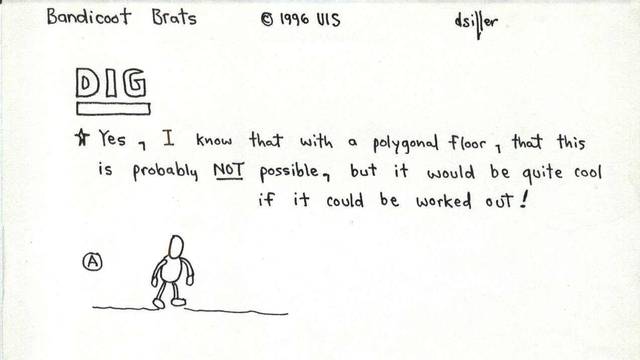 Bandicoot Brats © 1996 UIS dsiller
DIG
☆ Yes, I know that with a polygonal floor, that this
is probably NOT possible, but it would be quite cool
if it could be worked out!
A